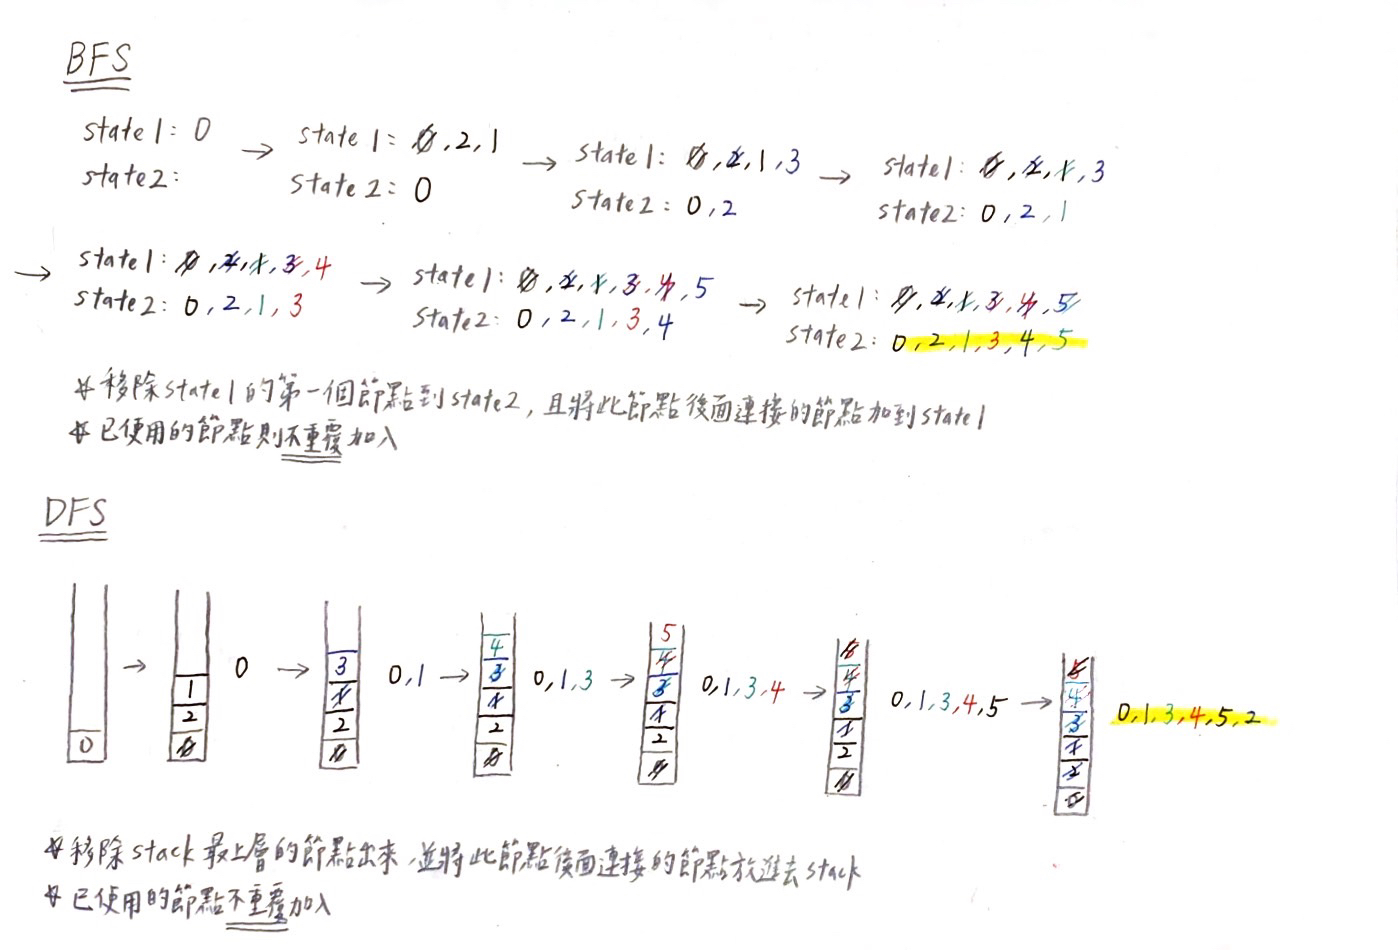 BFS
state1: 0 → state1: 0,2,1 → state1: 0,2,1,3 → state1: 0,2,1,3
state2: state2: 0 state2: 0,2 state2: 0,2,1
→ state1: 0,2,1,3,4 → state1: 0,2,1,3,4,5 → state1: 0,2,1,3,4,5
state2: 0,2,1,3 state2: 0,2,1,3,4 state2: 0,2,1,3,4,5
* 移除state1的第一個節點到state2,且將此節點後面連接的節點加到state1
* 已使用的節點則不重覆加入
DFS
0
→
1
2
0
0 →
3
1
2
0
0,1 →
4
3
1
2
0
0,1,3 →
5
4
3
1
2
0
0,1,3,4 →
5
4
3
1
2
0
0,1,3,4,5 →
5
4
3
1
2
0
0,1,3,4,5,2
* 移除stack最上層的節點出來,並將此節點後面連接的節點放進去stack
* 已使用的節點不重覆加入